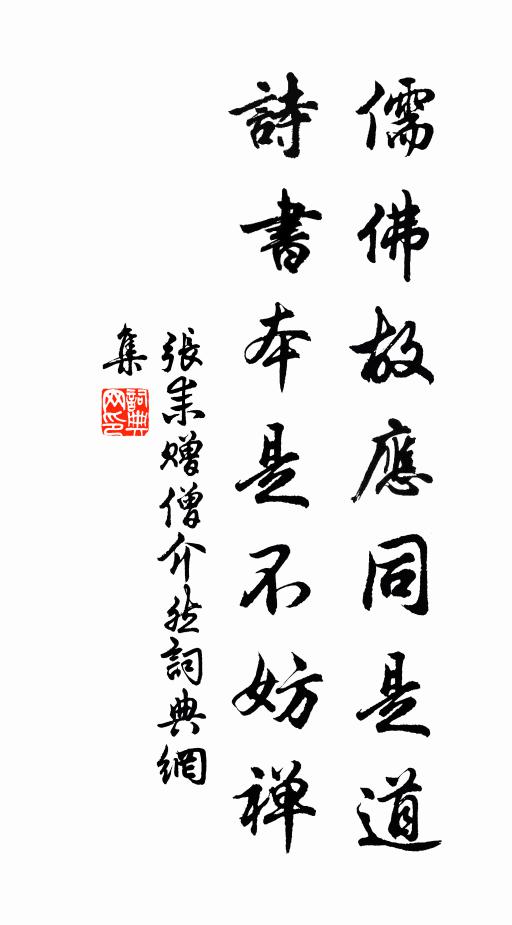 儒佛故應同是道
詩書本是不妨禅
張耒贈僧介然詞典網
集
詞典
网印